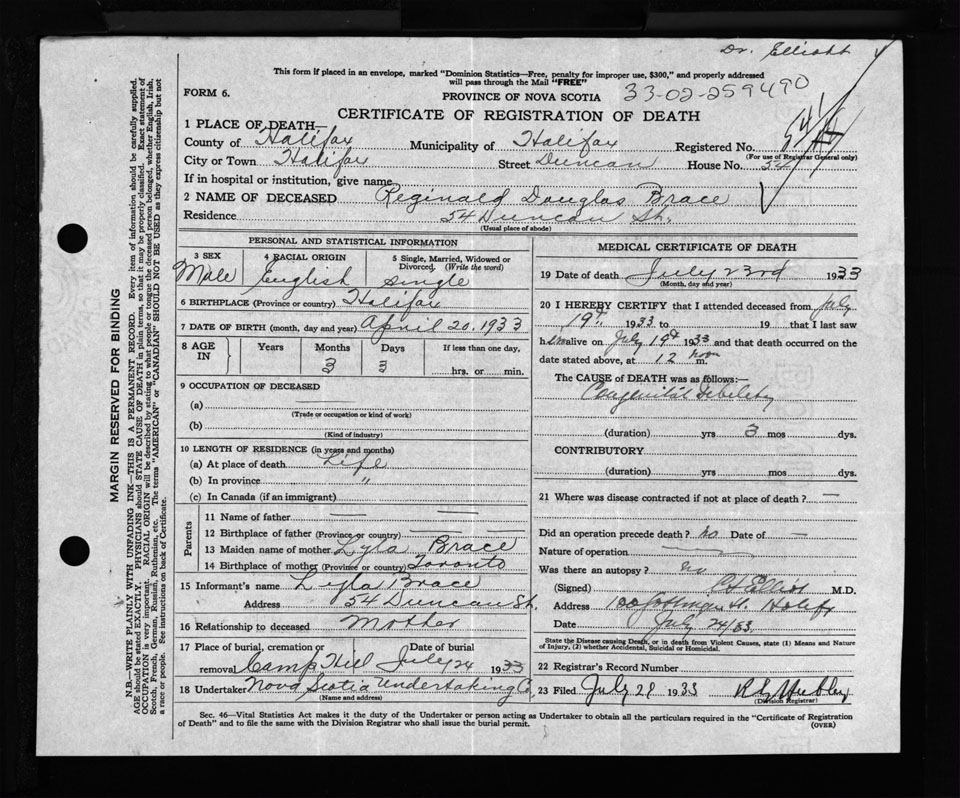 Dr. Elliott
This form if placed in an envelope, marked "Dominion Statistics—Free, penalty for improper use, $300," and properly addressed
will pass through the Mail "FREE"
FORM 6.
PROVINCE OF NOVA SCOTIA
33-02-259490
CERTIFICATE OF REGISTRATION OF DEATH
1 PLACE OF DEATH—
County of Halifax Municipality of Halifax Registered No.
(For use of Registrar General only)
City or Town Halifax Street Duncan House No. 54
If in hospital or institution, give name
2 NAME OF DECEASED Reginald Douglas Brace
Residence 54 Duncan St.
(Usual place of abode)
PERSONAL AND STATISTICAL INFORMATION
3 SEX 4 RACIAL ORIGIN 5 Single, Married, Widowed or Divorced. (Write the word)
Male English Single
6 BIRTHPLACE (Province or country) Halifax
7 DATE OF BIRTH (month, day and year) April 20, 1933
8 AGE IN Years Months Days If less than one day,
3 3 hrs. or min.
9 OCCUPATION OF DECEASED
(a) —
(Trade or occupation or kind of work)
(b)
(Kind of industry)
10 LENGTH OF RESIDENCE (in years and months)
(a) At place of death Life
(b) In province " "
(c) In Canada (if an immigrant)
Parents
11 Name of father — —
12 Birthplace of father (Province or country) — —
13 Maiden name of mother Lyla Brace
14 Birthplace of mother (Province or country) Toronto
15 Informant's name Lyla Brace
Address 54 Duncan St.
16 Relationship to deceased Mother
17 Place of burial, cremation or removal Date of burial
Camp Hill July 24 1933
18 Undertaker Nova Scotia Undertaking Co
(Name and address)
MEDICAL CERTIFICATE OF DEATH
19 Date of death July 23rd 1933
(Month, day and year)
20 I HEREBY CERTIFY that I attended deceased from July
19th 1933 to 19 that I last saw
h im alive on July 19th 1933 and that death occurred on the
date stated above, at 12 noon m.
The CAUSE of DEATH was as follows:—
Congenital Debility
(duration) yrs 3 mos dys.
CONTRIBUTORY
(duration) yrs mos dys.
21 Where was disease contracted if not at place of death? —
Did an operation precede death? no Date of —
Nature of operation —
Was there an autopsy? no
(Signed) Elliott M.D.
Address 100 St. Halifx
Date July 24/33
State the Disease causing Death, or in death from Violent Causes, state (1) Means and Nature
of Injury, (2) whether Accidental, Suicidal or Homicidal.
22 Registrar's Record Number
23 Filed July 29 1933
(Division Registrar)
Sec. 46—Vital Statistics Act makes it the duty of the Undertaker or person acting as Undertaker to obtain all the particulars required in the "Certificate of Registration
of Death" and to file the same with the Division Registrar who shall issue the burial permit.
(OVER)
MARGIN RESERVED FOR BINDING
N.B.—WRITE PLAINLY WITH UNFADING INK—THIS IS A PERMANENT RECORD. Every item of information should be carefully supplied.
AGE should be stated EXACTLY. PHYSICIANS should STATE CAUSE OF DEATH in plain terms, so that it may be properly classified. Exact statement of
OCCUPATION is very important. RACIAL ORIGIN will be described by stating to what people or tongue the deceased person belonged, whether English, Irish,
Scotch, French, German, Russian, Ruthenian, etc. The terms "AMERICAN" or "CANADIAN" SHOULD NOT BE USED as they express citizenship but not
a race or people. See instructions on back of Certificate.